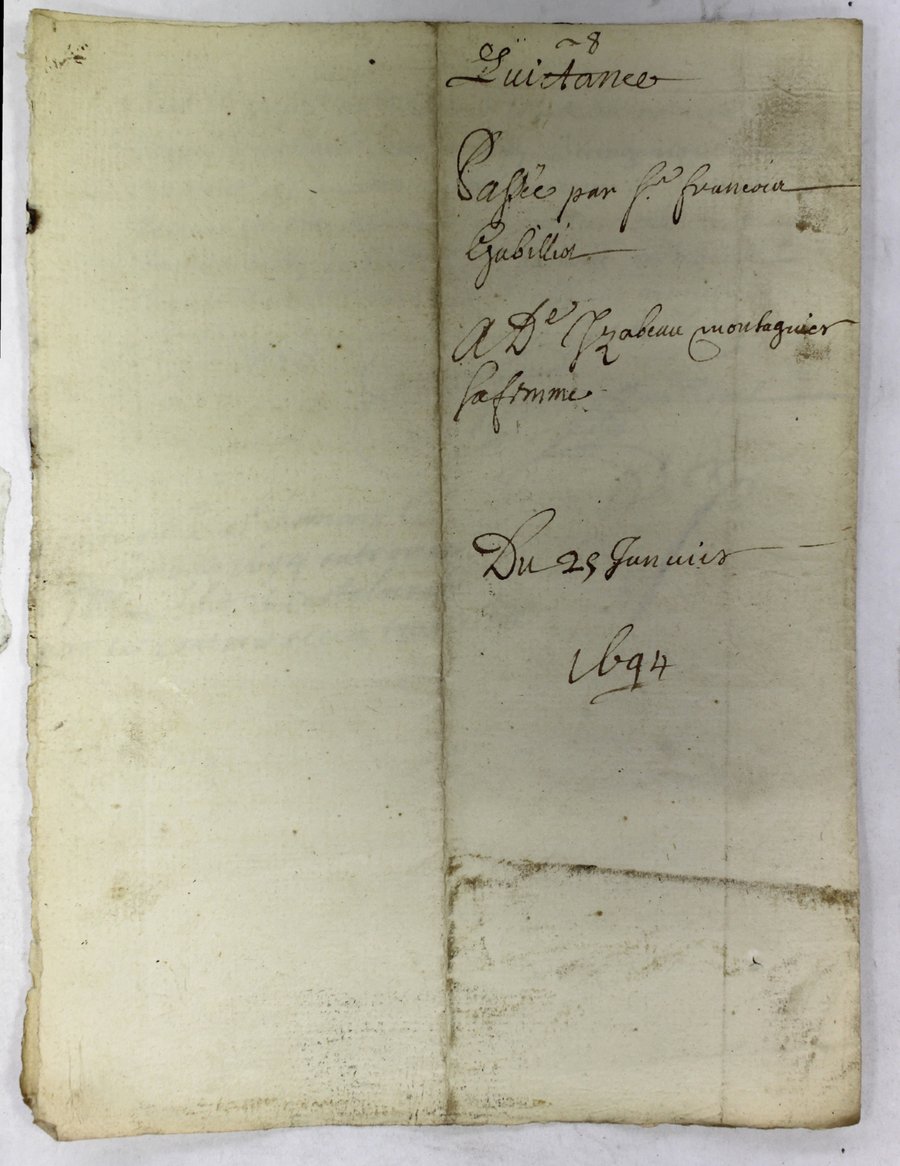 8
Quictance
Passée par Sr. francois
Gabilliot
A De Yzabeau montagnier
sa femme
Du 25 Januier
1694